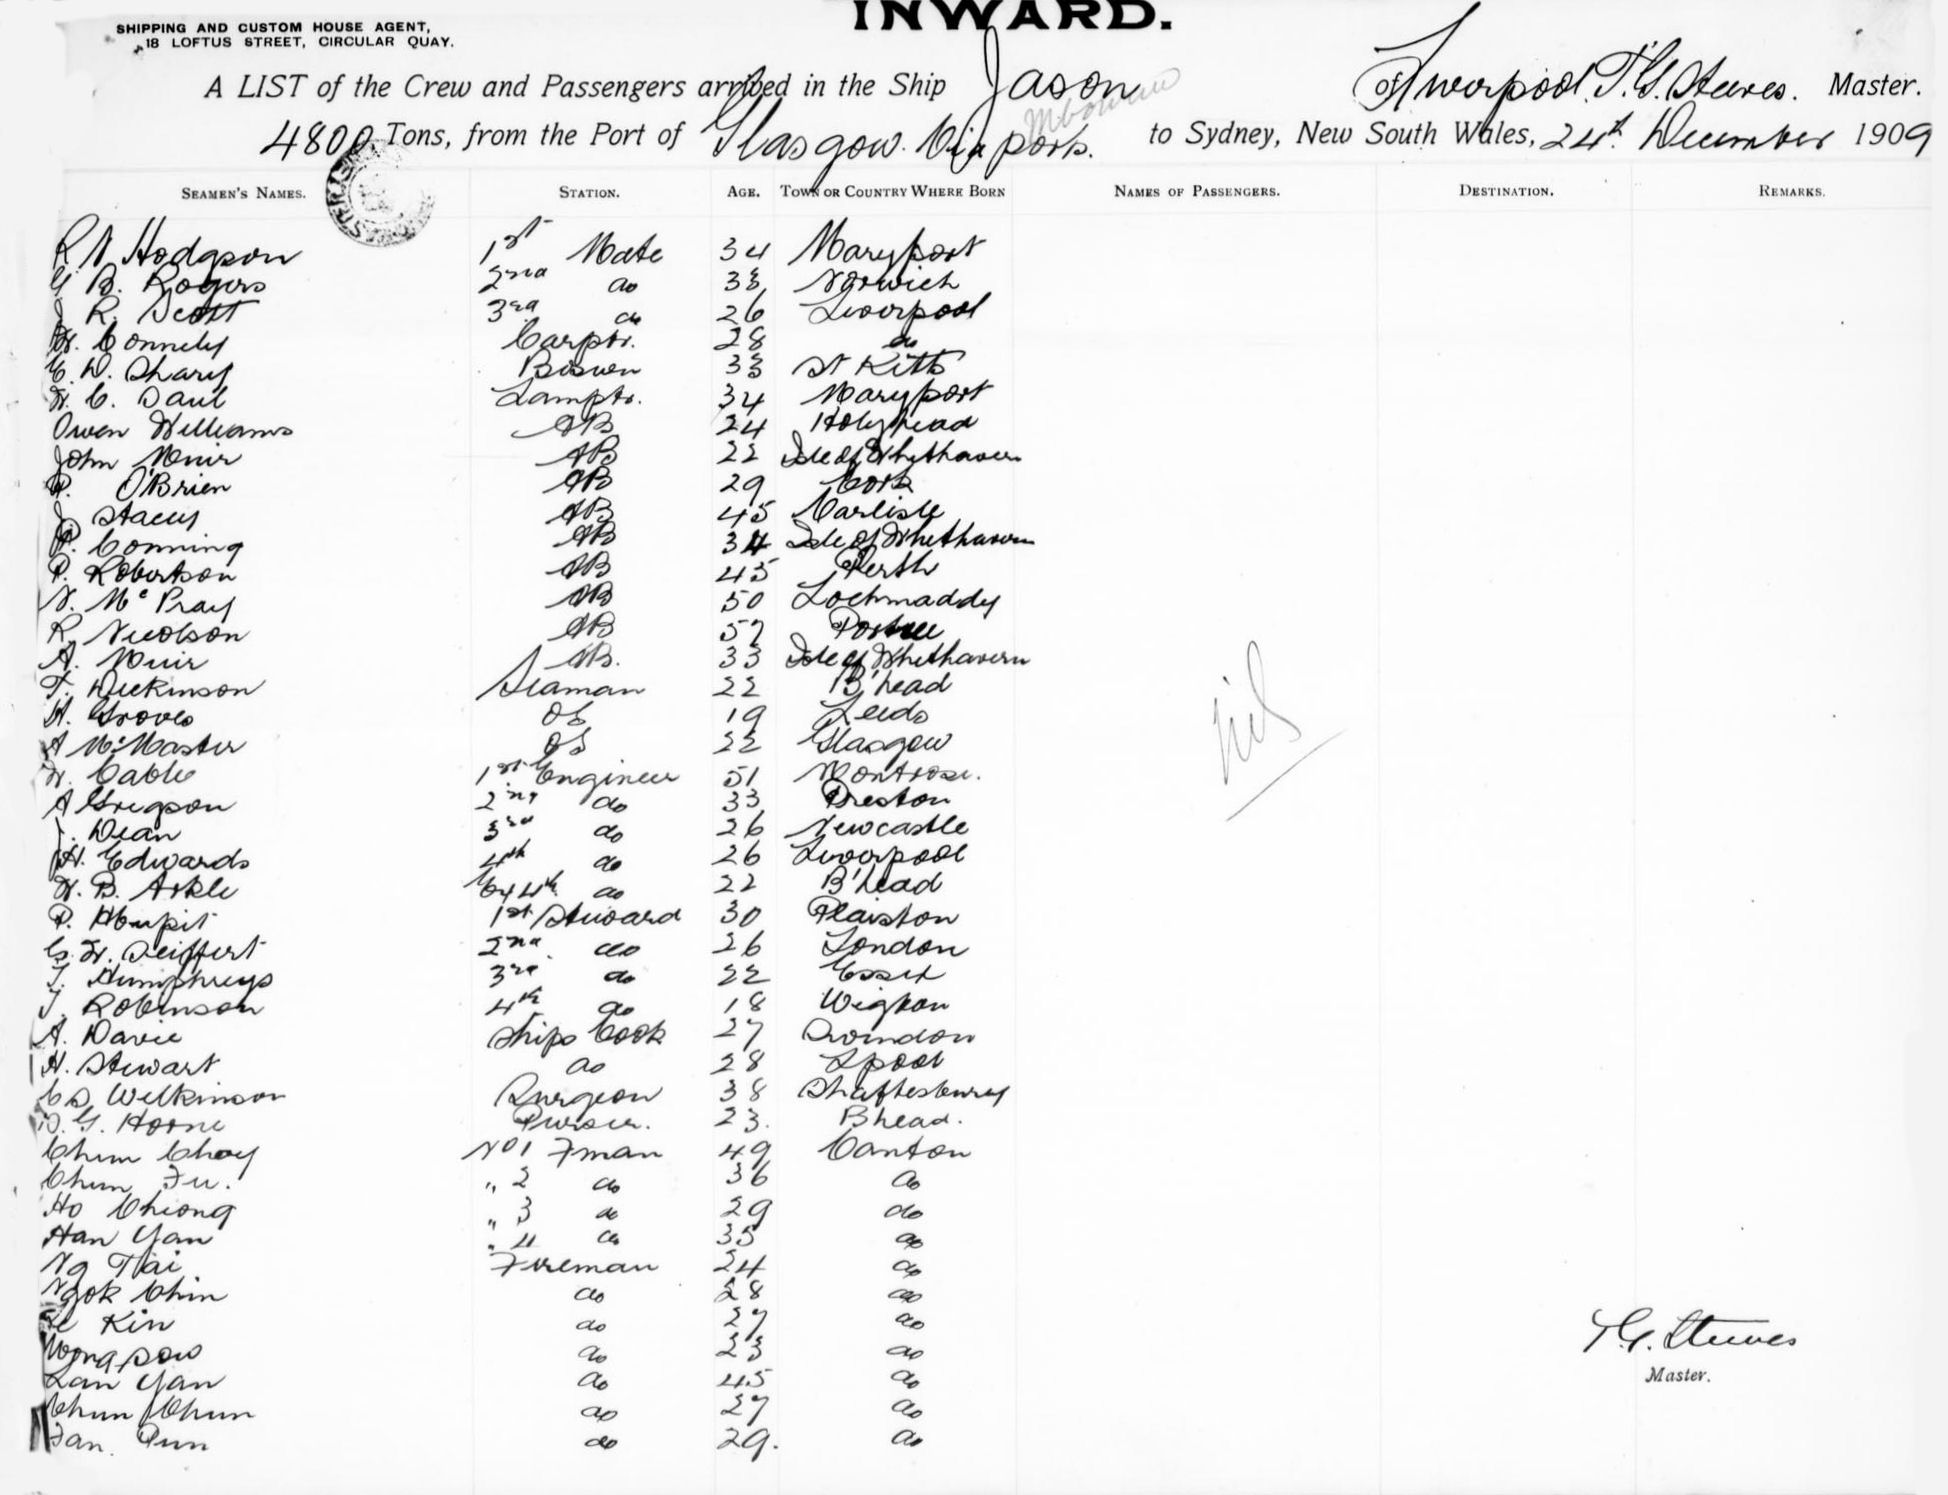 INWARD.
SHIPPING AND CUSTOM HOUSE AGENT,
18 LOFTUS STREET, CIRCULAR QUAY.
A LIST of the Crew and Passengers arrived in the Ship Jason of Liverpool. T. G. Steeves. Master.
4800 Tons, from the Port of Glasgow. Via ports. to Sydney, New South Wales, 24th December 1909
SEAMEN'S NAMES. STATION. AGE. TOWN OR COUNTRY WHERE BORN NAMES OF PASSENGERS. DESTINATION. REMARKS.
R N Hodgson 1st Mate 34 Maryport
G B. Rogers 2nd do 33 Norwich
J R. Scott 3rd do 26 Liverpool
W. Connely Carptr. 28 do
C. D. Sharp Bosun 33 St Kitts
W. C. Saul Lamptr. 34 Maryport
Owen Williams AB 24 Holyhead
John Muir AB 22 Isle of Whythaven
P. O'Brien AB 29 Cork
J. Stacey AB 45 Carlisle
P. Conning AB 34 Isle of Whethavern
P. Robertson AB 45 Perth
N. McPray AB 50 Lochmaddy
R. Nicolson AB 57 Portree
A. Muir AB. 33 Isle of Whethavern
T. Dickinson Seaman 22 B'head
H. Groves OS 19 Leeds
A McMaster OS 22 Glasgow
W. Cable 1st Engineer 51 Montrose.
A Gregson 2nd do 33 Preston
J. Dean 3rd do 26 Newcastle
H. Edwards 4th do 26 Liverpool
W. B. Arkle Ex 4th do 22 B'head
P. 1st Steward 30 Plaiston
C. W. Seiffert 2nd do 26 London
T. Humphreys 3rd do 22 Essex
T. Robinson 4th do 18 Wigton
A. Davie Ships Cook 27 Swindon
H. Stewart do 28 Lpool
C S Wilkinson Surgeon 38 Shaftesbury
G. Hoone Purser. 23. Bhead.
Chum Choy No 1 Fman 49 Canton
Chum Fu. " 2 do 36 do
Ho Cheong " 3 do 29 do
Han Yan " 4 do 35 do
Ng Tai Fireman 24 do
Ngok Chin do 28 do
Kin do 27 do
Wongpow do 23 do
Lan Yan do 45 do
Chun Chun do 27 do
Fan. Pun do 29. do
nil
T. G. Steeves
Master.